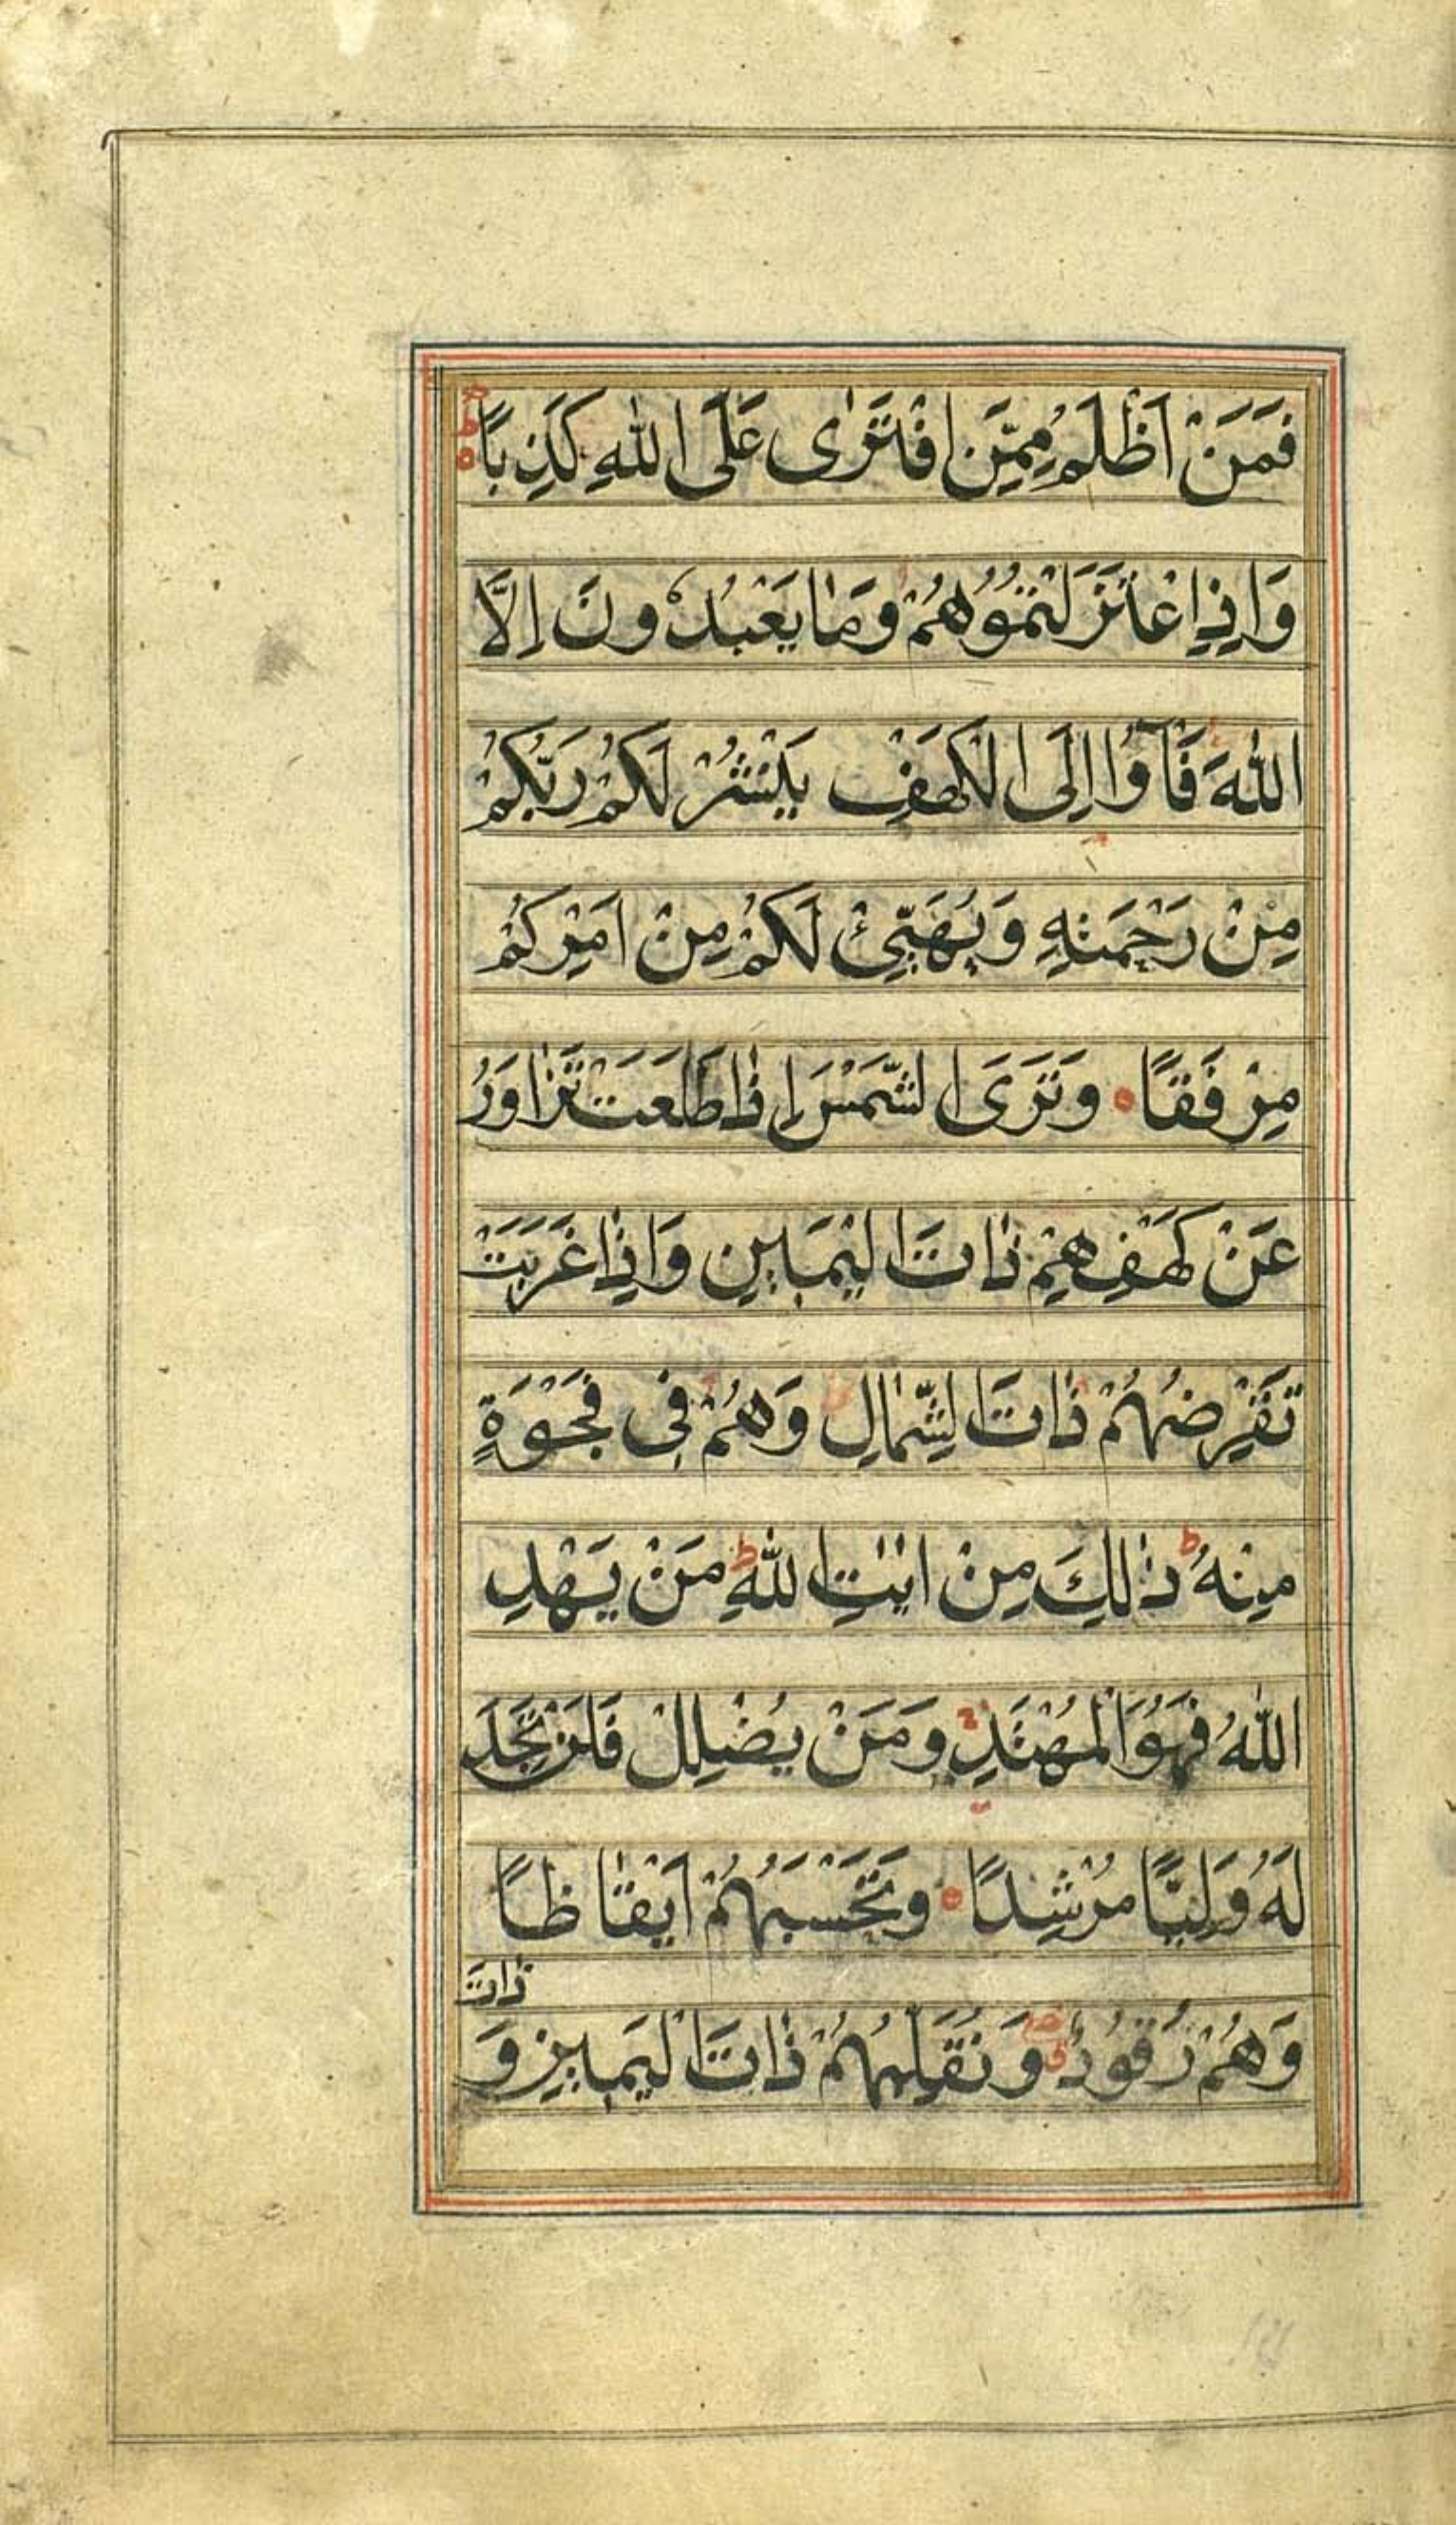 فَمَنْ اَظْلَمُ مِمَّنِ افْتَرٰى عَلَى اللّٰهِ كَذِبًا
وَاِذِ اعْتَزَلْتُمُوْهُمْ وَمَا يَعْبُدُوْنَ اِلَّا
اللّٰهَ فَأْوٗا اِلَى الْكَهْفِ يَنْشُرْ لَكُمْ رَبُّكُمْ
مِنْ رَحْمَتِهٖ وَيُهَيِّئْ لَكُمْ مِنْ اَمْرِكُمْ
مِرْفَقًا وَتَرَى الشَّمْسَ اِذَا طَلَعَتْ تَزَاوَرُ
عَنْ كَهْفِهِمْ ذَاتَ الْيَمِيْنِ وَاِذَا غَرَبَتْ
تَقْرِضُهُمْ ذَاتَ الشِّمَالِ وَهُمْ فِى فَجْوَةٍ
مِنْهُ ط ذٰالِكَ مِنْ اٰيٰتِ اللّٰهِ ط مَنْ يَهْدِ
اللّٰهُ فَهُوَ الْمُهْتَدِ وَمَنْ يُضْلِلْ فَلَنْ تَجِدَ
لَهُ وَلِيًّا مُرْشِدًا وَتَحْسَبُهُمْ اَيْقَاظًا
وَهُمْ رُقُوْدٌ وَنُقَلِّبُهُمْ ذَاتَ الْيَمِيْنِ وَ
ذَاتَ